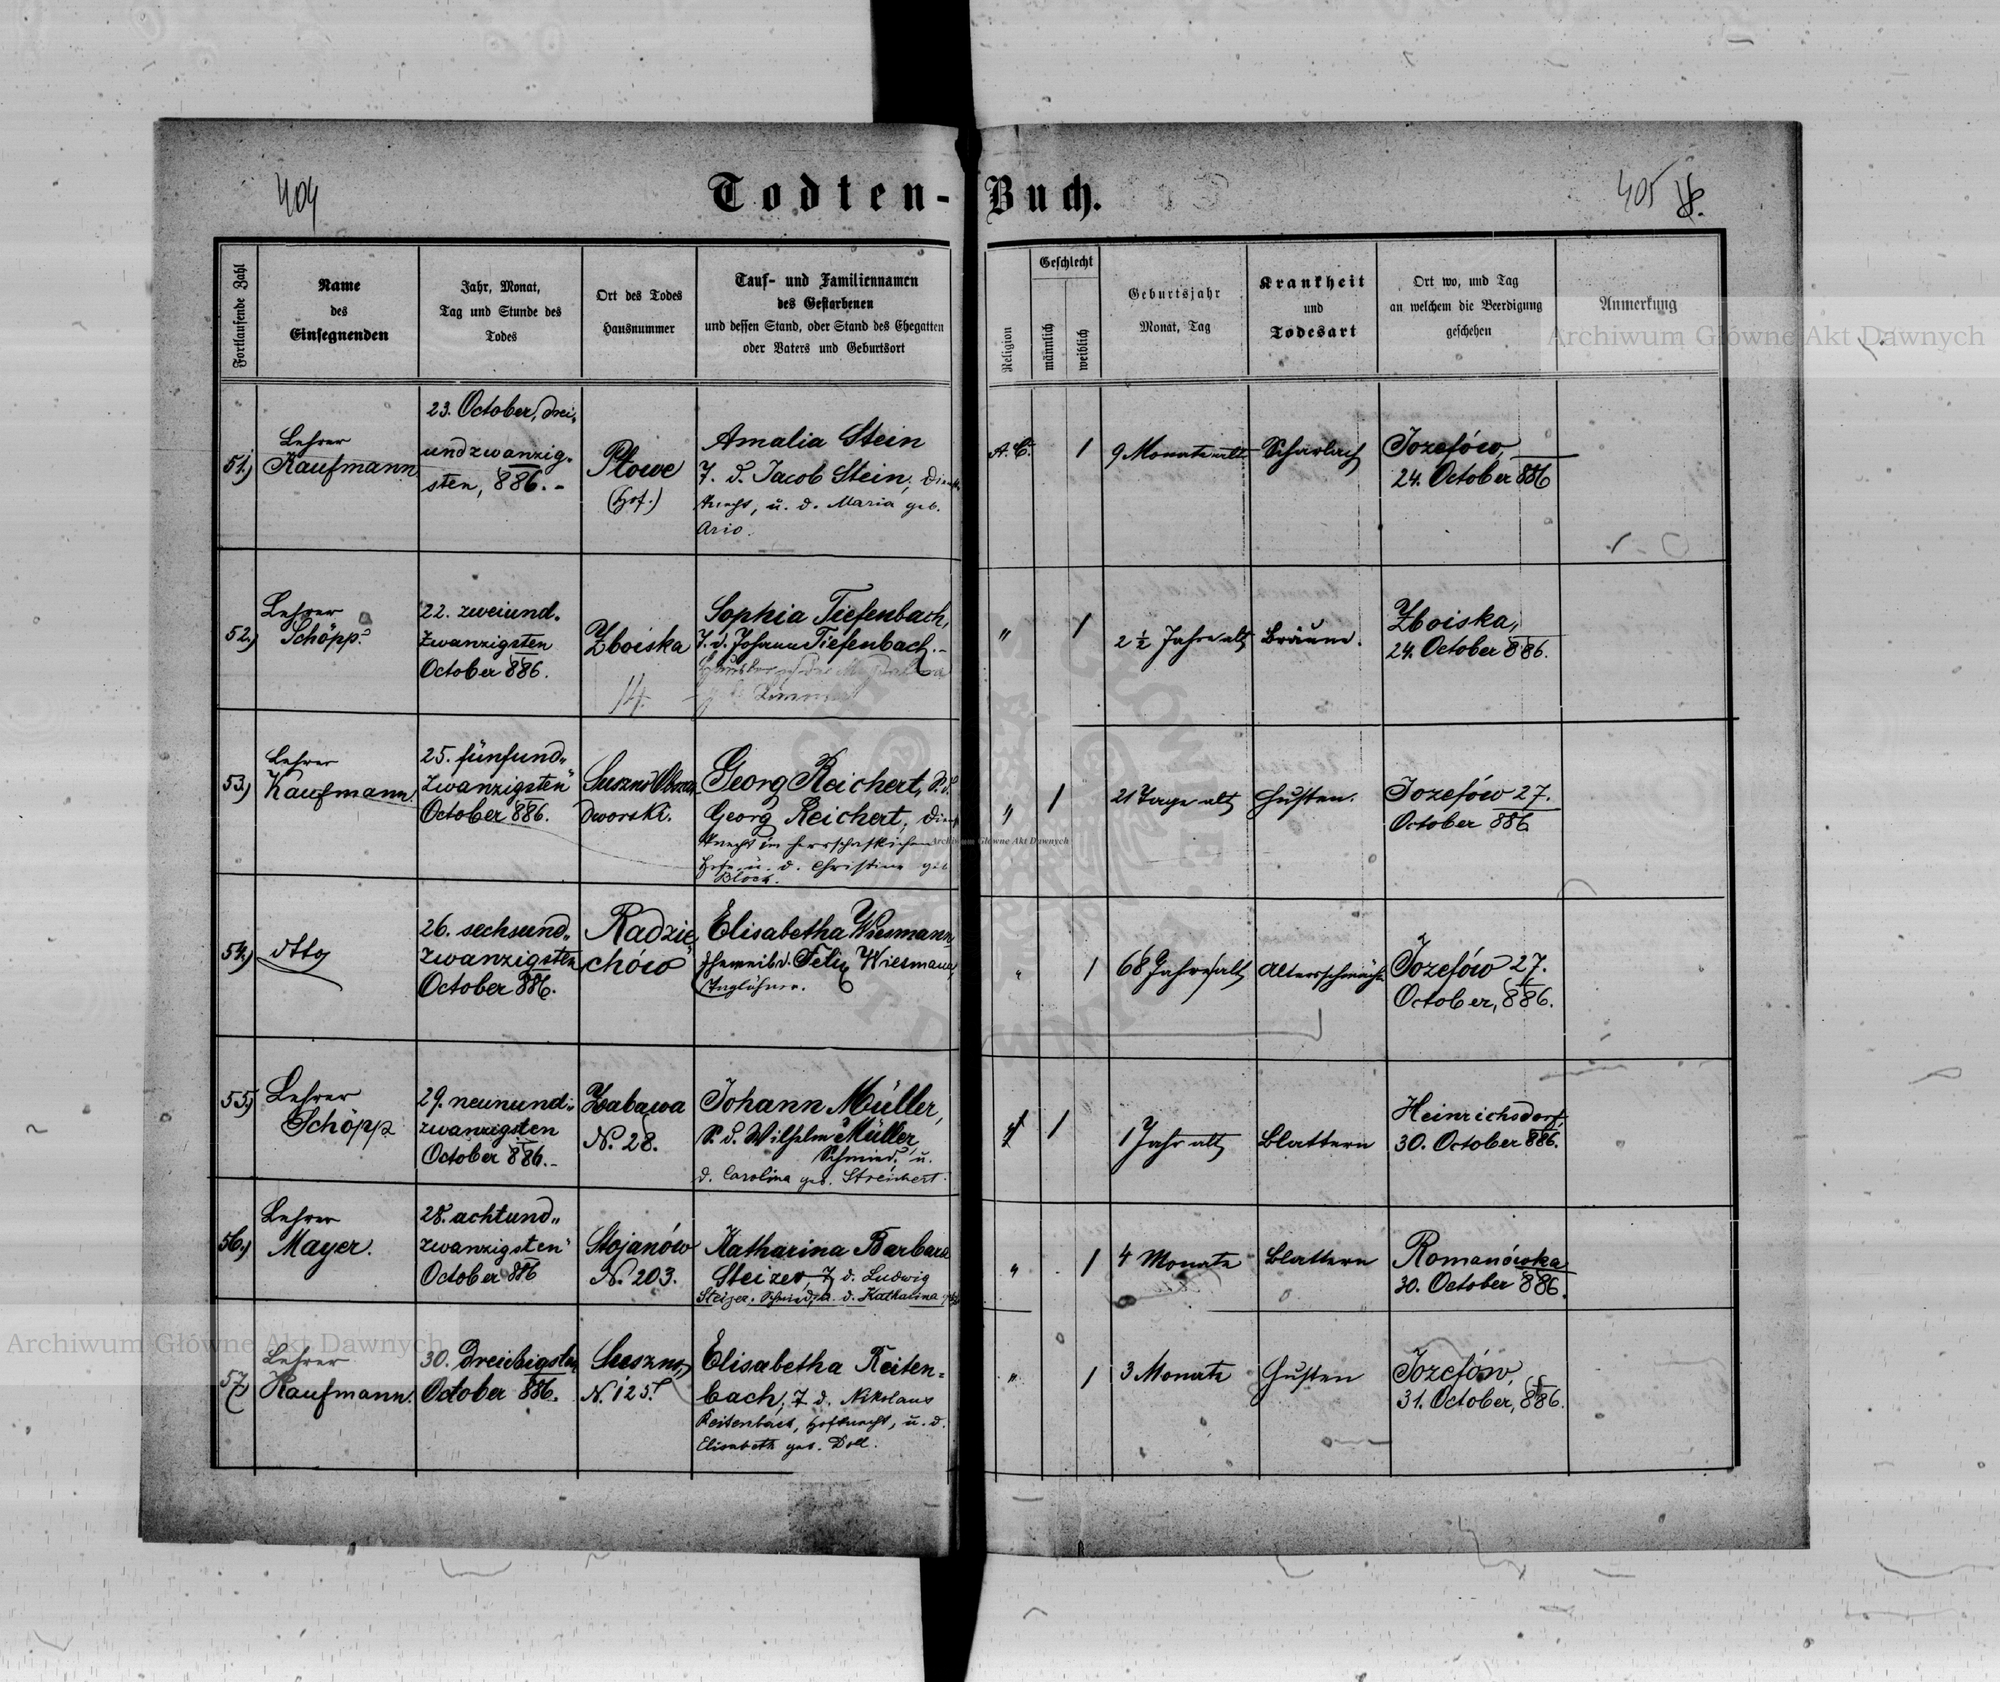 404
Todten-Buch.
405
Fortlaufende Zahl
Name
des
Einsegnenden
Jahr, Monat,
Tag und Stunde des
Todes
Ort des Todes
Hausnummer
Tauf- und Familiennamen
des Gestorbenen
und dessen Stand, oder Stand des Ehegatten
oder Vaters und Geburtsort
Religion
Geschlecht
männlich
weiblich
Geburtsjahr
Monat, Tag
Krankheit
und
Todesart
Ort wo, und Tag
an welchem die Beerdigung
geschehen
Anmerkung
51.)
Lehrer
Kaufmann
23. October, drei-
undzwanzig-
sten, 886.-
Płowe
(Hof.)
Amalia Stein
T. d. Jacob Stein,
u. d. Maria geb.
Ario.
A. C.
1
9 Monate alt
Scharlach
Jozefów,
24. October 886
52.)
Lehrer
Schöpp
22. zweiund-
zwanzigsten
October 886.
Zboiska
14.
Sophia Tiefenbach,
T. d. Johann Tiefenbach.-
"
1
2 ½ Jahre alt
Bräune.
Zboiska,
24. October 886.
53.)
Lehrer
Kaufmann.
25. fünfund-
zwanzigsten
October 886.
Suszno
Dworski.
Georg Reichert, S. d.
Georg Reichert,
knecht im herrschaftlichen
Hofe, u. d. Christine geb.
Block.
"
1
21 Tage alt
Husten.
Jozefów 27.
October 886
54.)
dtto
26. sechsund-
zwanzigsten
October 886.
Radzie-
chów
Elisabetha Wiesmann,
Eheweib d. Felix Wiesmann,
Taglöhner.
"
1
68 Jahre alt
Altersschwäche
Jozefów 27.
October, 886.
55.)
Lehrer
Schöpp
29. neunund-
zwanzigsten
October 886.-
Zabawa
No. 28.
Johann Müller,
S. d. Wilhelm Müller,
Schmied, u.
d. Carolina geb. Streichert.
"
1
1 Jahr alt
Blattern
Heinrichsdorf,
30. October 886.
56.)
Lehrer
Mayer.
28. achtund-
zwanzigsten
October 886
Stojanów
No. 203.
Katharina Barbara
Steizer, T. d. Ludwig
Steizer, Schmied, u. d. Katharina
"
1
4 Monate
Blattern
Romanówka
30. October 886.
57.)
Lehrer
Kaufmann.
30. Dreißigsten
October 886.
Suszno,
N. 125.
Elisabetha Reiten-
bach, T. d. Nikolaus
Reitenbach, Hofknecht, u. d.
Elisabeth geb. Doll.
"
1
3 Monate
Husten
Jozefów,
31. October, 886.
Archiwum Główne Akt Dawnych
Archiwum Główne Akt Dawnych
Archiwum Główne Akt Dawnych